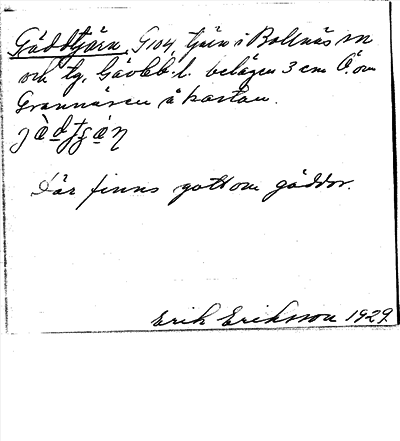 Gäddtjärn, Gror, tjärn i Bollnäs sn
och tg, Gävleb. l. belägen 3 cm Ö. om
Grannäsen å kartan.
Där finns gott om gäddor.
Erik Eriksson 1929.